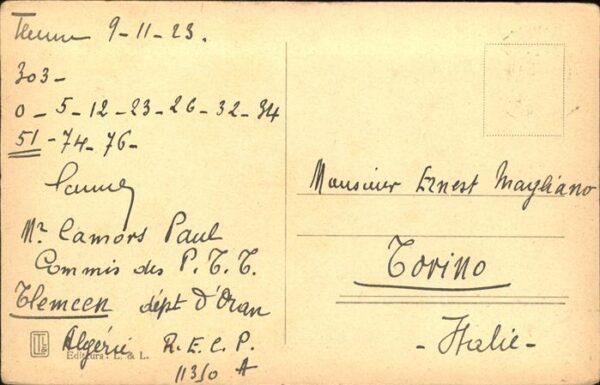 Tlemcen 9-11-23.
303-
0-5-12-23-26-32-34
51-74-76-
Mr Camors Paul
Commis des P.T.T.
Tlemcen dépt d'Oran
Algérie R.E.C.P.
1130 A
Editeurs: L. & L.
Monsieur Ernest Magliano
Torino
- Italie -